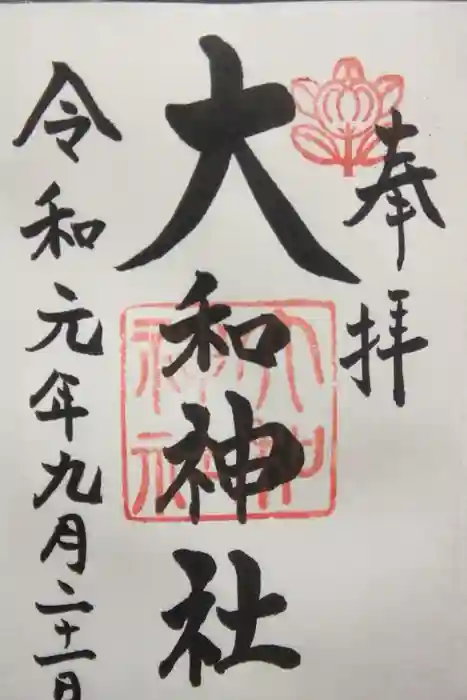 奉拝
大和神社
令和元年九月二十一日